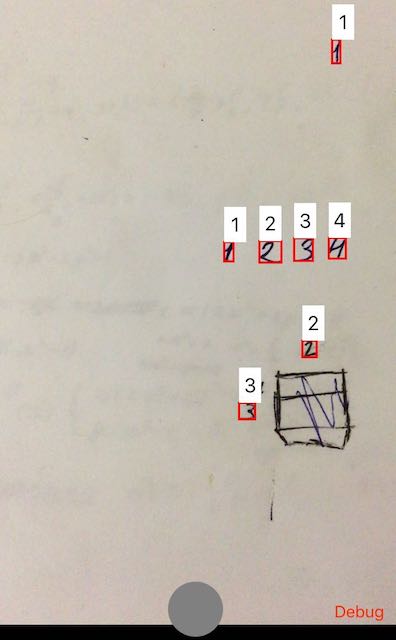 1
1
1 2 3 4
1 2 3 4
2
2
3
3
Debug